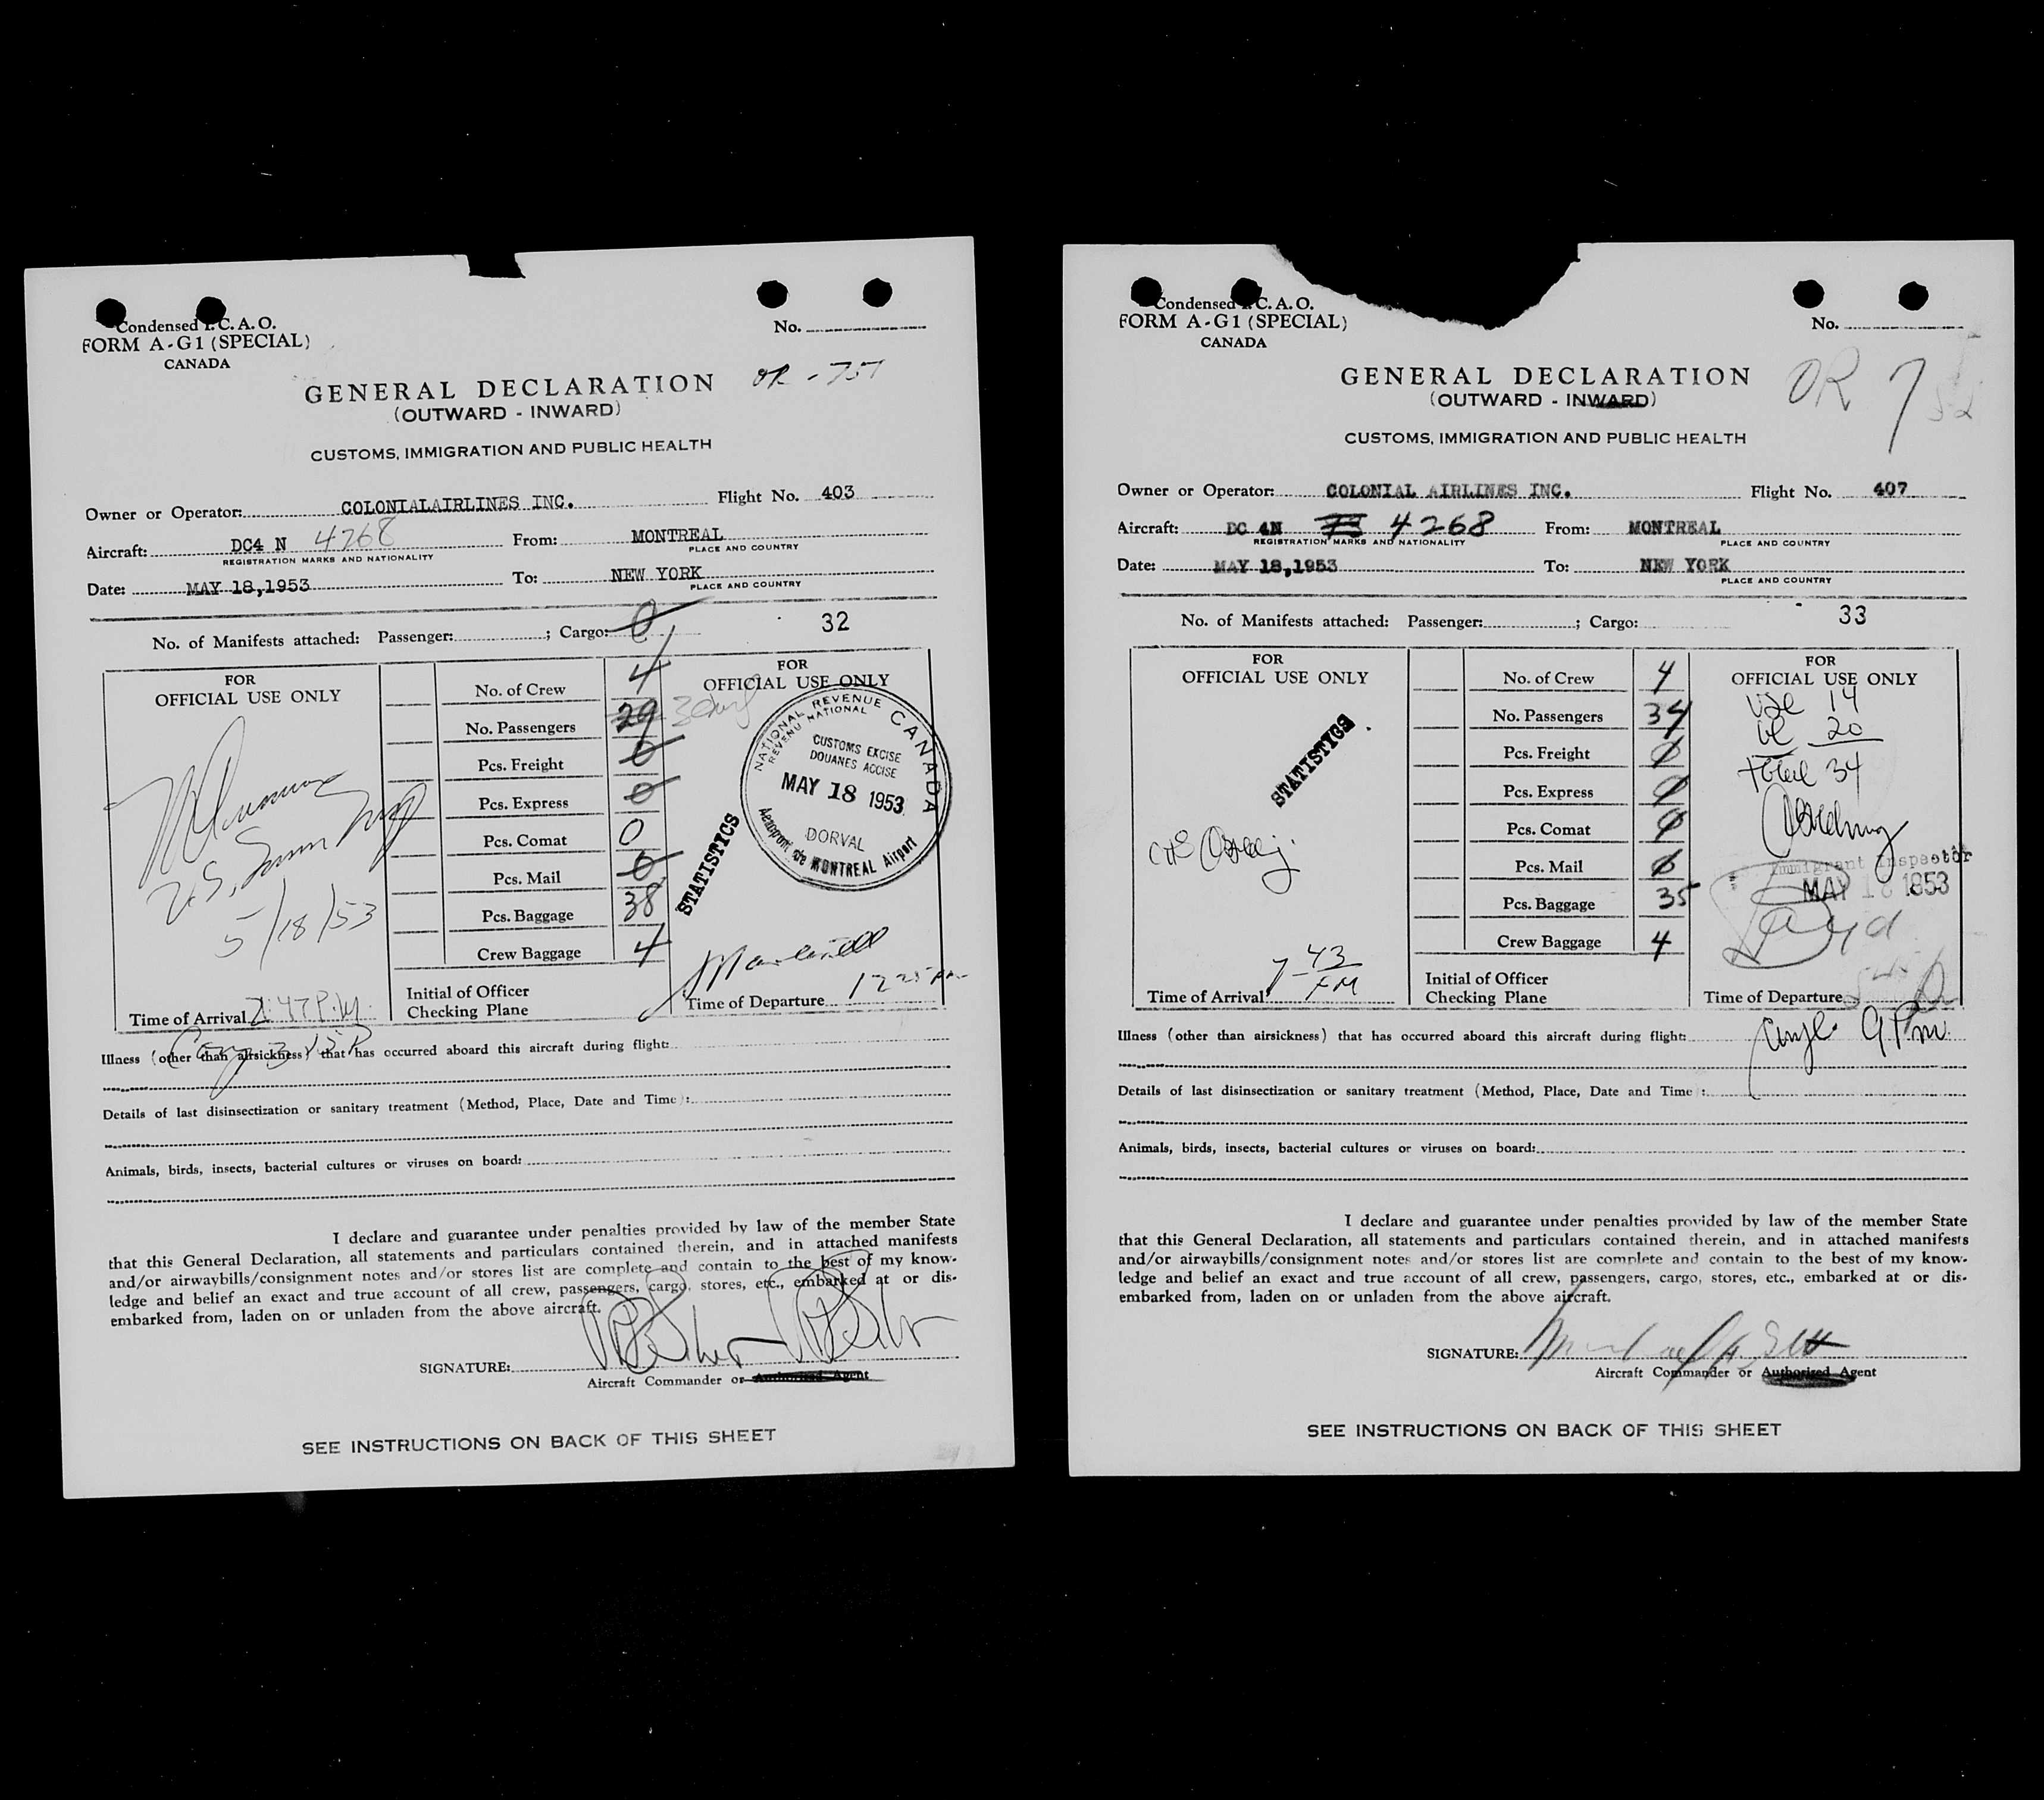 Condensed I.C.A.O.
FORM A-G1 (SPECIAL)
CANADA
No.
OR - 751
GENERAL DECLARATION
(OUTWARD - INWARD)
CUSTOMS, IMMIGRATION AND PUBLIC HEALTH
Owner or Operator: COLONIALAIRLINES INC. Flight No. 403
Aircraft: DC4 N 4268 From: MONTREAL
REGISTRATION MARKS AND NATIONALITY PLACE AND COUNTRY
Date: MAY 18,1953 To: NEW YORK
PLACE AND COUNTRY
No. of Manifests attached: Passenger: ; Cargo: 0 32
FOR
OFFICIAL USE ONLY
U.S.
5/18/53
Time of Arrival 2:47 P.M.
No. of Crew 4
No. Passengers 29 30
Pcs. Freight 0
Pcs. Express 0
Pcs. Comat 0
Pcs. Mail 0
Pcs. Baggage 38
Crew Baggage 4
Initial of Officer
Checking Plane
FOR
OFFICIAL USE ONLY
NATIONAL REVENUE CANADA
REVENU NATIONAL
CUSTOMS EXCISE
DOUANES ACCISE
MAY 18 1953
DORVAL
Aéroport de MONTREAL Airport
STATISTICS
Time of Departure 12 25 PM
Illness (other than airsickness) that has occurred aboard this aircraft during flight:
Details of last disinsectization or sanitary treatment (Method, Place, Date and Time):
Animals, birds, insects, bacterial cultures or viruses on board:
I declare and guarantee under penalties provided by law of the member State
that this General Declaration, all statements and particulars contained therein, and in attached manifests
and/or airwaybills/consignment notes and/or stores list are complete and contain to the best of my know-
ledge and belief an exact and true account of all crew, passengers, cargo, stores, etc., embarked at or dis-
embarked from, laden on or unladen from the above aircraft.
SIGNATURE:
Aircraft Commander or Authorized Agent
SEE INSTRUCTIONS ON BACK OF THIS SHEET
Condensed I.C.A.O.
FORM A-G1 (SPECIAL)
CANADA
No.
OR 752
GENERAL DECLARATION
(OUTWARD - INWARD)
CUSTOMS, IMMIGRATION AND PUBLIC HEALTH
Owner or Operator: COLONIAL AIRLINES INC. Flight No. 407
Aircraft: DC 4N 4268 From: MONTREAL
REGISTRATION MARKS AND NATIONALITY PLACE AND COUNTRY
Date: MAY 18,1953 To: NEW YORK
PLACE AND COUNTRY
No. of Manifests attached: Passenger: ; Cargo: 33
FOR
OFFICIAL USE ONLY
STATISTICS
7-43 PM
Time of Arrival
No. of Crew 4
No. Passengers 34
Pcs. Freight 0
Pcs. Express 0
Pcs. Comat 0
Pcs. Mail 0
Pcs. Baggage 35
Crew Baggage 4
Initial of Officer
Checking Plane
FOR
OFFICIAL USE ONLY
14
20
total 34
Immigrant Inspector
MAY 18 1953
Time of Departure
9 Pm
Illness (other than airsickness) that has occurred aboard this aircraft during flight:
Details of last disinsectization or sanitary treatment (Method, Place, Date and Time):
Animals, birds, insects, bacterial cultures or viruses on board:
I declare and guarantee under penalties provided by law of the member State
that this General Declaration, all statements and particulars contained therein, and in attached manifests
and/or airwaybills/consignment notes and/or stores list are complete and contain to the best of my know-
ledge and belief an exact and true account of all crew, passengers, cargo, stores, etc., embarked at or dis-
embarked from, laden on or unladen from the above aircraft.
SIGNATURE:
Aircraft Commander or Authorized Agent
SEE INSTRUCTIONS ON BACK OF THIS SHEET